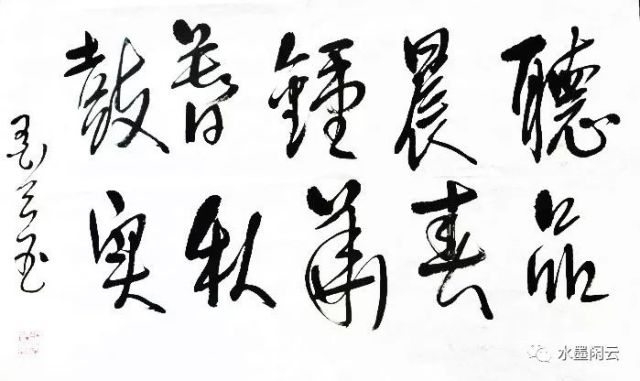 聽晨鍾暮鼓
品春華秋实
水墨闲云